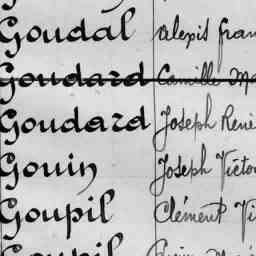 Goudal alexis fran
Goudard Camille Ma
Goudard Joseph René
Gouin Joseph Victo
Goupil Clément Vi
Goupil